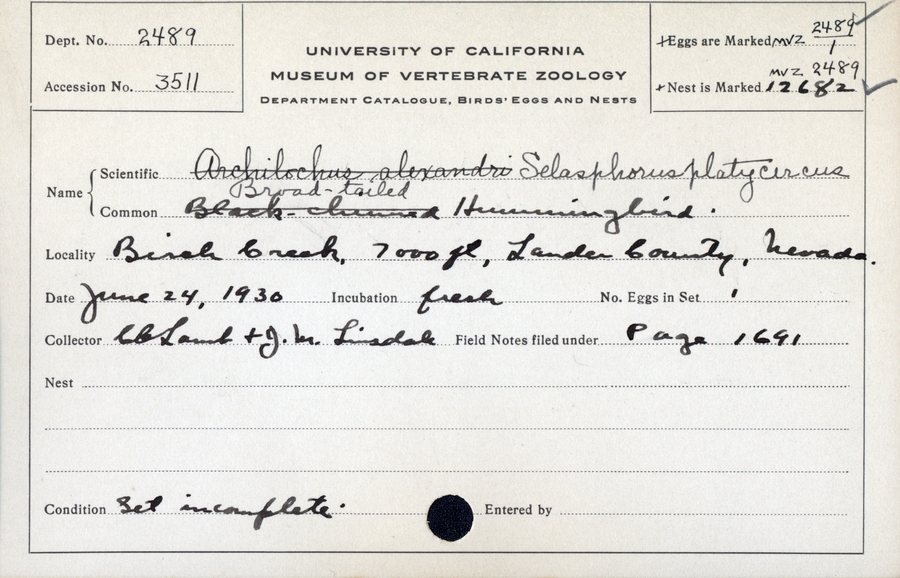 Dept. No. 2489
Accession No. 3511
UNIVERSITY OF CALIFORNIA
MUSEUM OF VERTEBRATE ZOOLOGY
DEPARTMENT CATALOGUE, BIRDS' EGGS AND NESTS
+Eggs are Marked MVZ 2489/1
MVZ 2489
+ Nest is Marked 12682
Name
Scientific Archilochus alexandri Selasphorus platycercus
Broad-tailed
Common Black-chinned Hummingbird.
Locality Birch Creek, 7000 ft, Lander County, Nevada.
Date June 24, 1930 Incubation fresh No. Eggs in Set 1
Collector CC Lamb + J. M. Linsdale Field Notes filed under Page 1691
Nest
Condition Set incomplete. Entered by